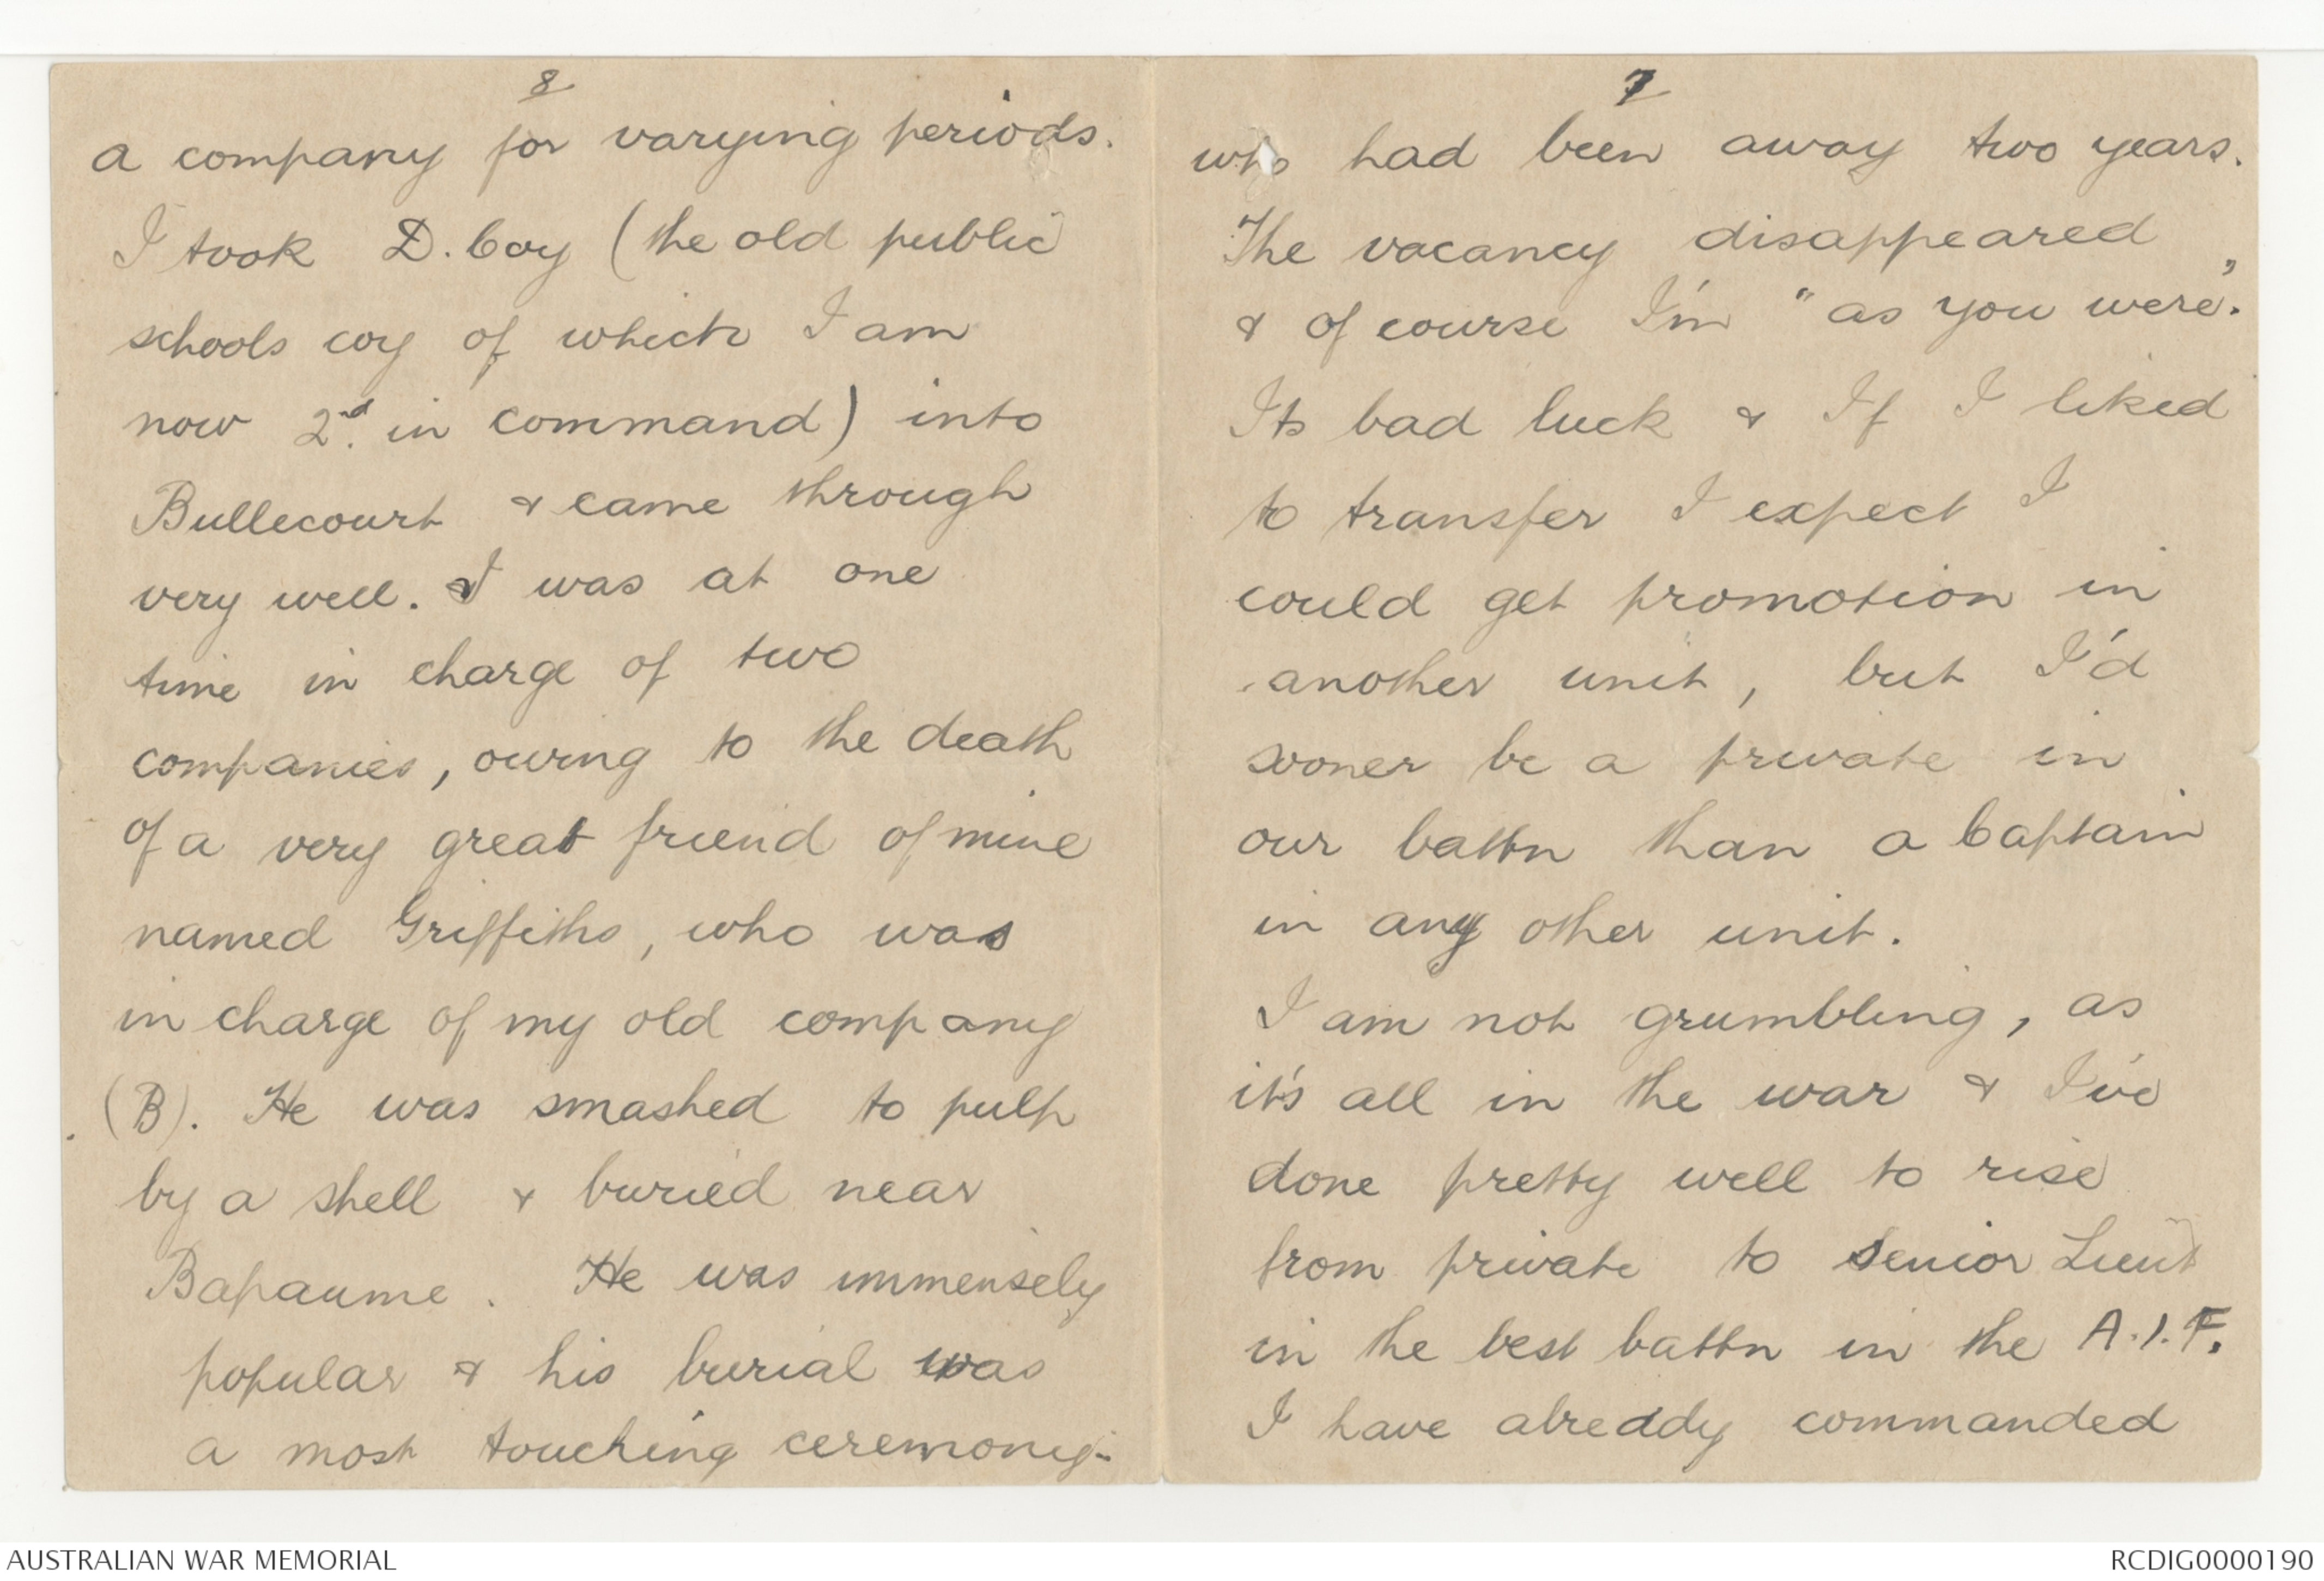 8
a company for varying periods.
I took D. Coy (the old public
schools coy of which I am
now 2nd. in command) into
Bullecourt & came through
very well. I was at one
time in charge of two
companies, owing to the death
of a very great friend of mine
named Griffiths, who was
in charge of my old company
(B). He was smashed to pulp
by a shell & buried near
Bapaume. He was immensely
popular & his burial was
a most touching ceremony.
7
who had been away two years.
The vacancy disappeared,
& of course I'm "as you were".
Its bad luck & If I liked
to transfer I expect I
could get promotion in
another unit, but I'd
sooner be a private in
our battn than a Captain
in any other unit.
I am not grumbling, as
it's all in the war & I've
done pretty well to rise
from private to senior Lieut
in the best battn in the A.I.F.
I have already commanded
AUSTRALIAN WAR MEMORIAL
RCDIG0000190